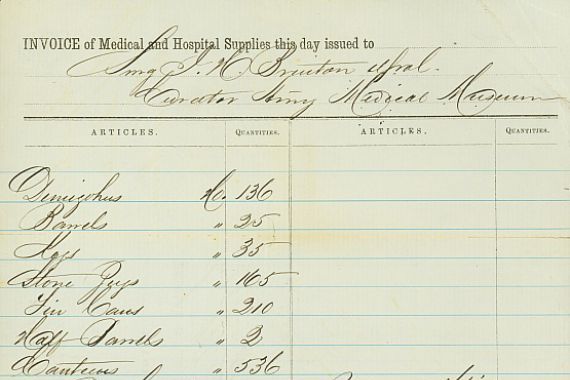 INVOICE of Medical and Hospital Supplies this day issued to
Surg J. H. Brinton U.S.Vol.
Curator Army Medical Museum
ARTICLES. QUANTITIES. ARTICLES. QUANTITIES.
Demijohns No. 136
Barrels " 25
Kegs " 35
Stone Jugs " 165
Tin Cans " 210
Half Barrels " 2
Canteens " 536